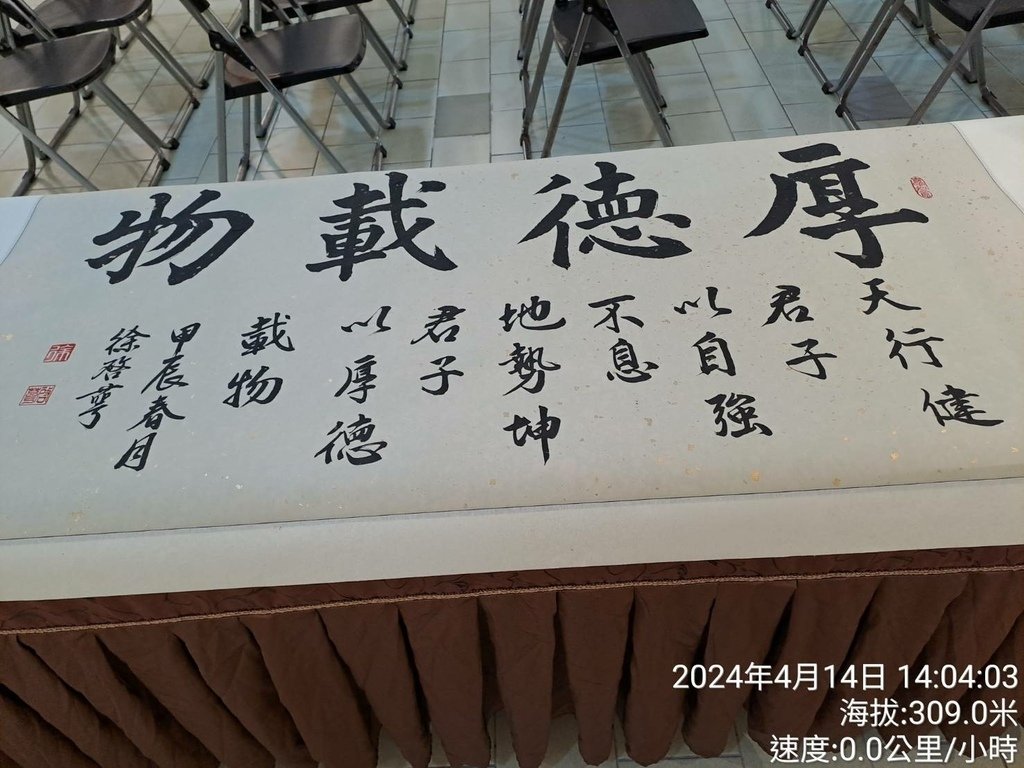 厚德載物
天行健
君子
以自強
不息
地勢坤
君子
以厚德
載物
甲辰春月
徐啓
2024年4月14日 14:04:03
海拔:309.0米
速度:0.0公里/小時